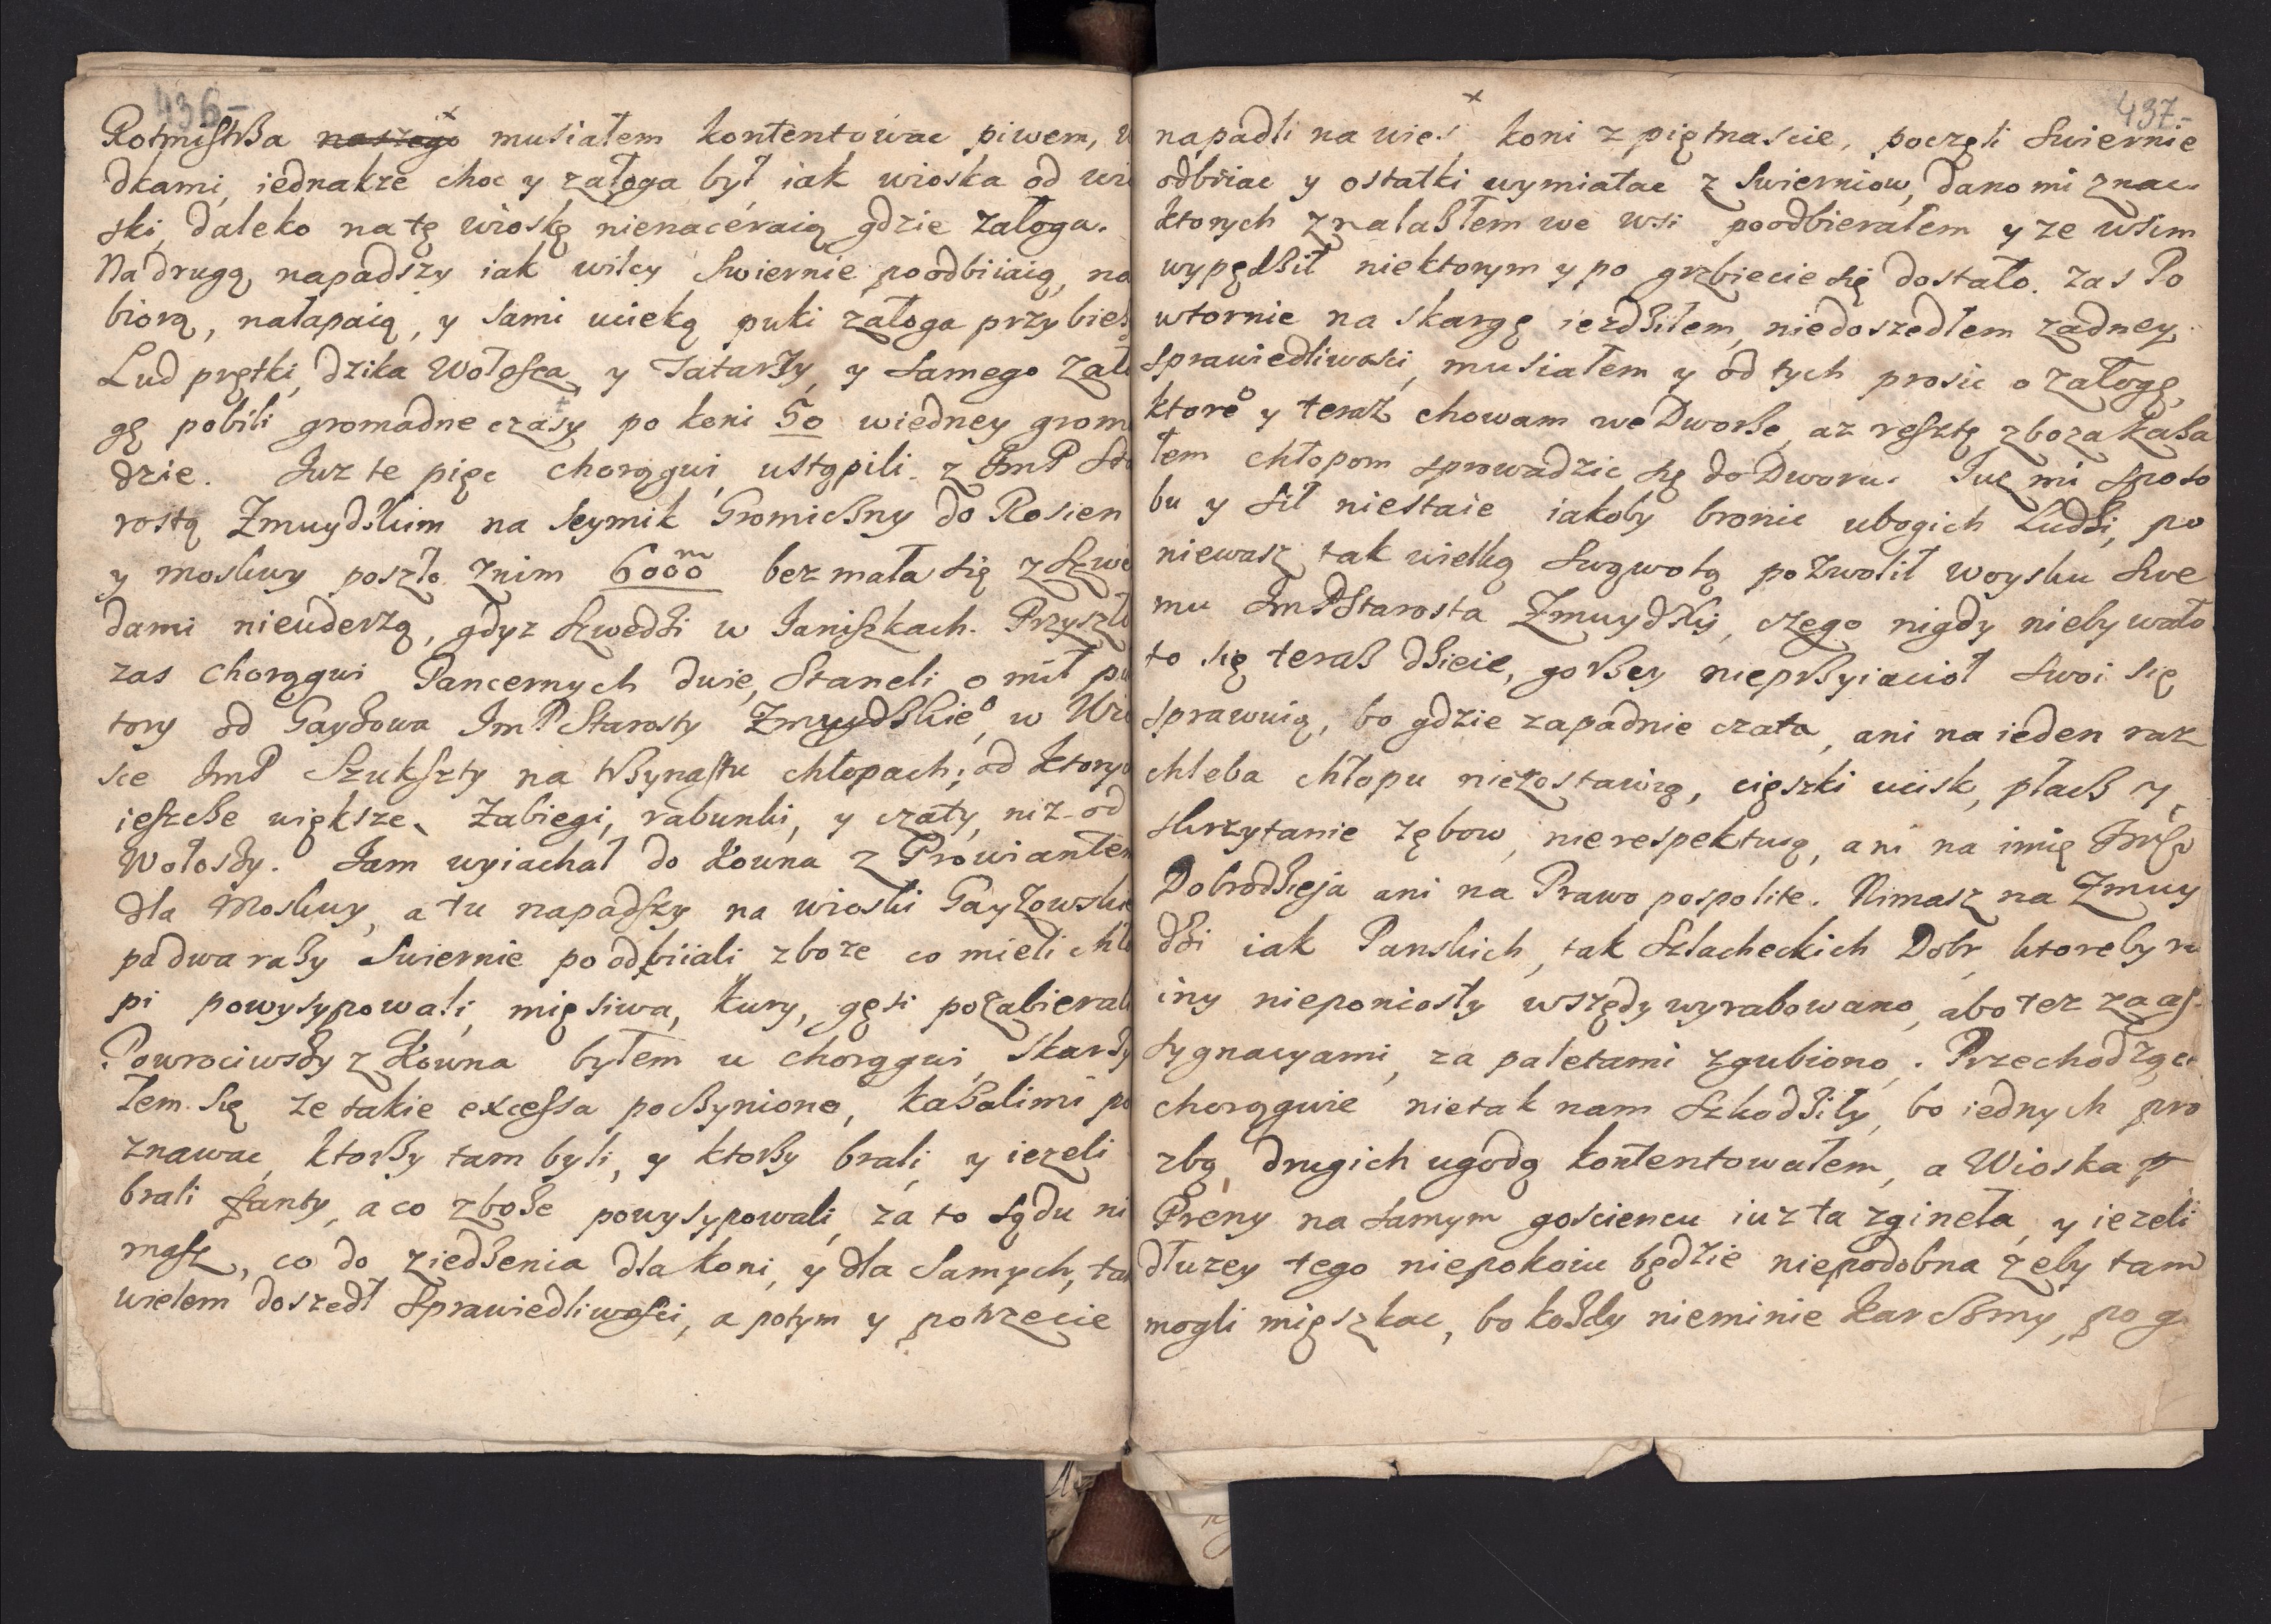 436-
Rotmistrza naszego musiałem kontentowac piwem, w
dkami, iednakze choc y załoga był iak wioska od wio
ski, daleko na tę wioskę nienaceraią gdzie załoga.
Na drugą napadszy iak wilcy Swiernie poodbiiaią, na
biorą, nałapaią, y sami ucieką puki załoga przybież
Lud prętki, dzika Wołosza y Tatarzy, y samego zało
gę pobili gromadne czasy po koni 50 wiedney grom
dzie. Iuz te pięc chorągwi ustąpili z ImP Sta
rostą Żmuydskim na Seymik Gromiczny do Rosien
y Moskwy poszło znim 6000 m bez mała się z Szwe
dami nieuderzą, gdyz Szwedzi w Ianiszkach. Przyszli
zas chorągwi Pancernych dwie, Staneli o mil pu
tory od Gayżowa ImP Starosty Żmuydskieo, w Wio
sce ImP Szukszty na trzynastu chłopach; od ktorych
ieszcze większe zabiegi, rabunki, y czaty, niz od
Wołoszy. Iam wyiachał do Kowna z Prowiantem
dla Moskwy, a tu napadszy na wioski Gayżowskie
pa dwa razy Swiernie poodbiiali zboze co mieli chło
pi powysypowali, mięsiwa, kury, gęsi pozabierali
Powrociwszy z Kowna byłem u chorągwi, skarży
łem się ze takie excessa poczyniono, kazalimi po
znawac, ktorzy tam byli, y ktorzy brali, y iezeli
brali fanty, a co zboże powysypowali, za to sądu ni
masz, co do ziedzenia dla koni, y dla samych, tak
wielem doszedł Sprawiedliwosci, a potym y potrzecie
437-
napadli na wies, koni z piętnascie, poczęli Swiernie
odbiiac y ostatki wymiatac z Swierniow, dano mi znac.
ktorych znalazłem we wsi poodbierałem y ze wsim
wypędził niektorym y po grzbiecie się dostało. zas Po
wtornie na skargę iezdziłem, niedoszedłem zadney
sprawiedliwosci, musiałem y od tych prosic o załogę,
ktoreo y teraz chowam we Dworze, az resztę zboza kaza
łem chłopom sprowadzic się do Dworu. Iuz mi sposo
bu y sił niestaie iakoby bronic ubogich Ludzi, po
niewasz tak wielką swąwolą pozwolił woysku swe
mu ImPStarosta Żmuydzkij, czego nigdy niebywało
to się teraz dzieie, gorzey nieprzyiacioł swoi się
sprawuią, bo gdzie zapadnie czata, ani na ieden raz
chleba chłopu niezostawią, cięszki ucisk, płacz y
skrzytanie zębow, nierespektuią, ani na imię
Dobrodzieja ani na Prawo pospolite. Nimasz na Żmuy
dzi iak Panskich, tak Szlacheckich Dobr, ktoreby ru
iny nieponiosły wszędy wyrabowano, abo tez za as
sygnacyami, za paletami zgubiono. Przechodzące
chorągwie nietak nam szkodziły, bo iednych pro
zbą, drugich ugodą kontentowałem, a Wioska
Preny na samym goscieńcu iuz ta zgineła, y iezeli
dłuzey tego niepokoiu będzie niepodobna zeby tam
mogli mięszkac, bo każdy nieminie karczmy,